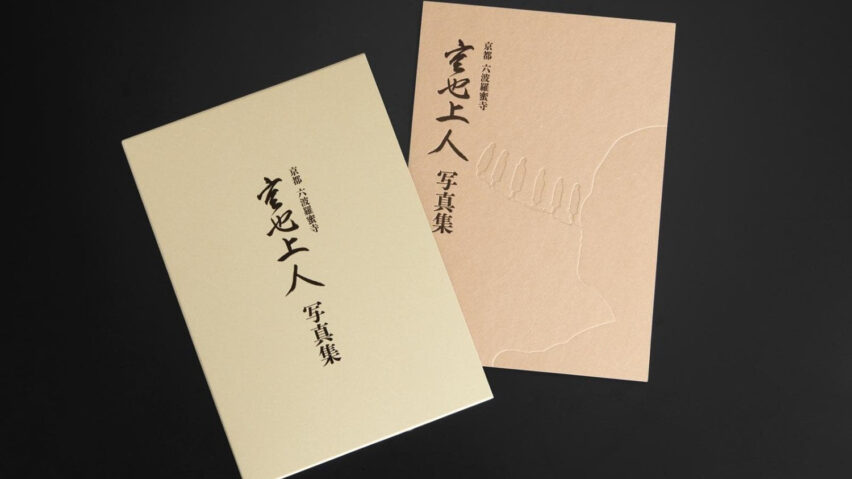 京都 六波羅蜜寺
空也上人
写真集
京都 六波羅蜜寺
空也上人
写真集